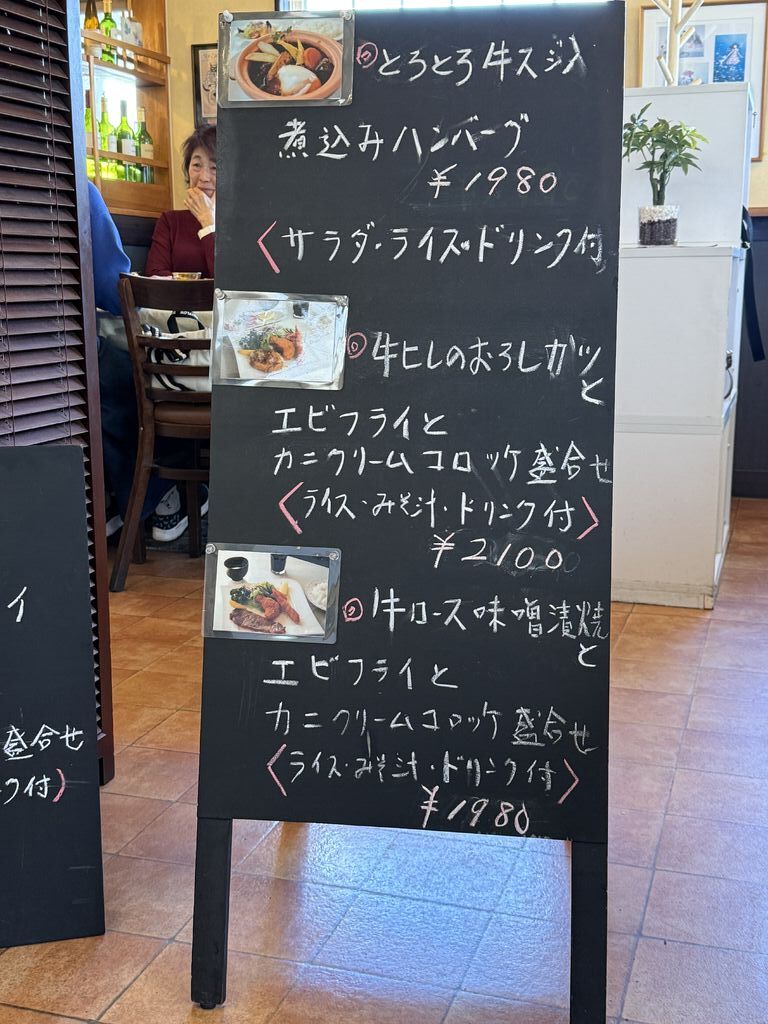 ◎とろとろ牛スジ入
煮込みハンバーグ
¥1980
〈サラダ・ライス・ドリンク付
◎牛ヒレのおろしカツと
エビフライと
カニクリームコロッケ盛合せ
〈ライス・みそ汁・ドリンク付〉
¥2100
◎牛ロース味噌漬焼と
エビフライと
カニクリームコロッケ盛合せ
〈ライス・みそ汁・ドリンク付〉
¥1980
イ
盛合せ
ク付〉